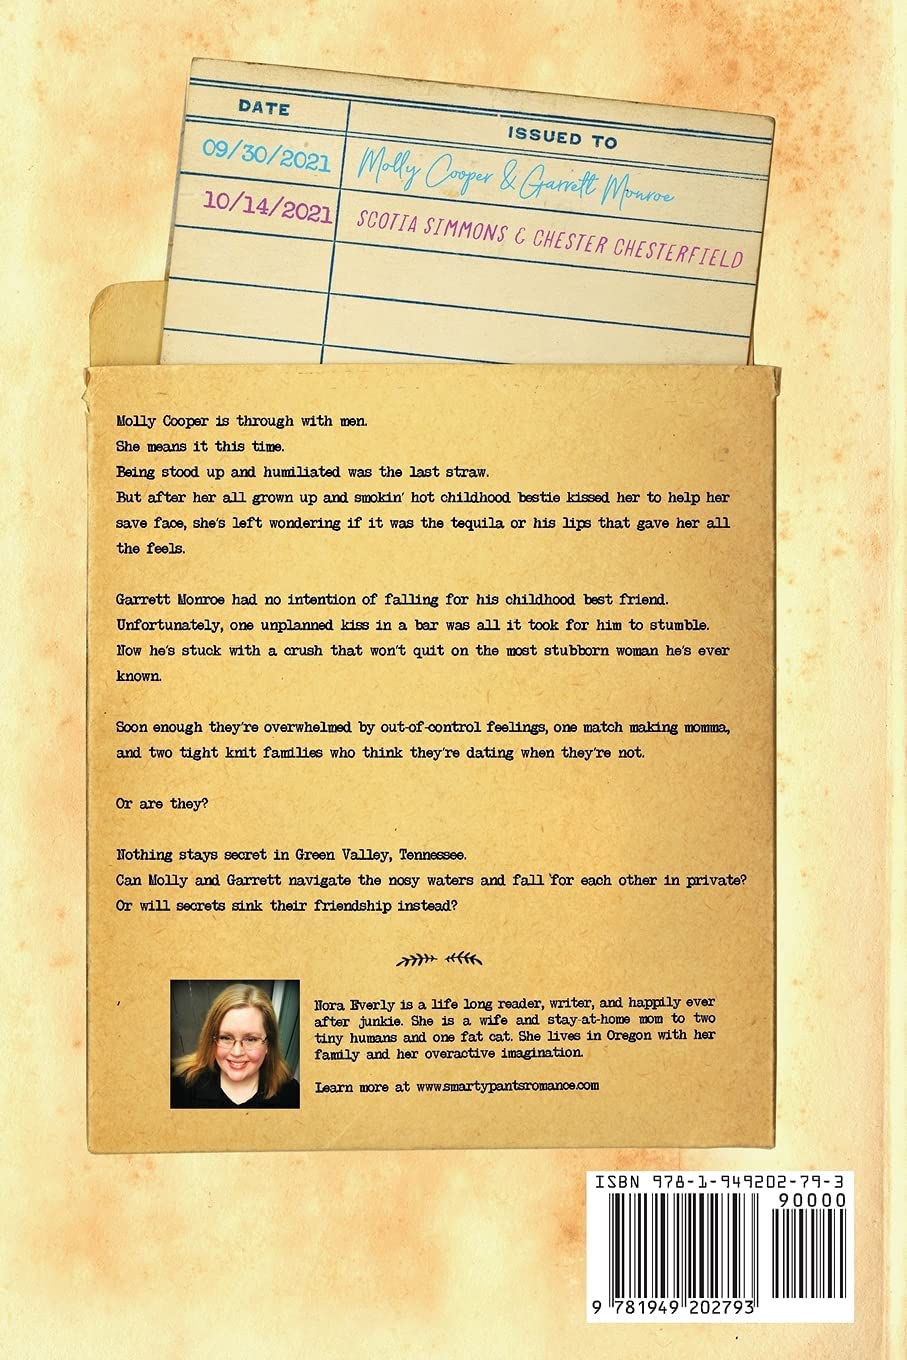 DATE
ISSUED TO
09/30/2021
Molly Cooper & Garrett Monroe
10/14/2021
SCOTIA SIMMONS & CHESTER CHESTERFIELD
Molly Cooper is through with men.
She means it this time.
Being stood up and humiliated was the last straw.
But after her all grown up and smokin' hot childhood bestie kissed her to help her
save face, she's left wondering if it was the tequila or his lips that gave her all
the feels.
Garrett Monroe had no intention of falling for his childhood best friend.
Unfortunately, one unplanned kiss in a bar was all it took for him to stumble.
Now he's stuck with a crush that won't quit on the most stubborn woman he's ever
known.
Soon enough they're overwhelmed by out-of-control feelings, one match making momma,
and two tight knit families who think they're dating when they're not.
Or are they?
Nothing stays secret in Green Valley, Tennessee.
Can Molly and Garrett navigate the nosy waters and fall for each other in private?
Or will secrets sink their friendship instead?
Nora Everly is a life long reader, writer, and happily ever
after junkie. She is a wife and stay-at-home mom to two
tiny humans and one fat cat. She lives in Oregon with her
family and her overactive imagination.
Learn more at www.smartypantsromance.com
ISBN 978-1-949202-79-3
90000
9 781949 202793